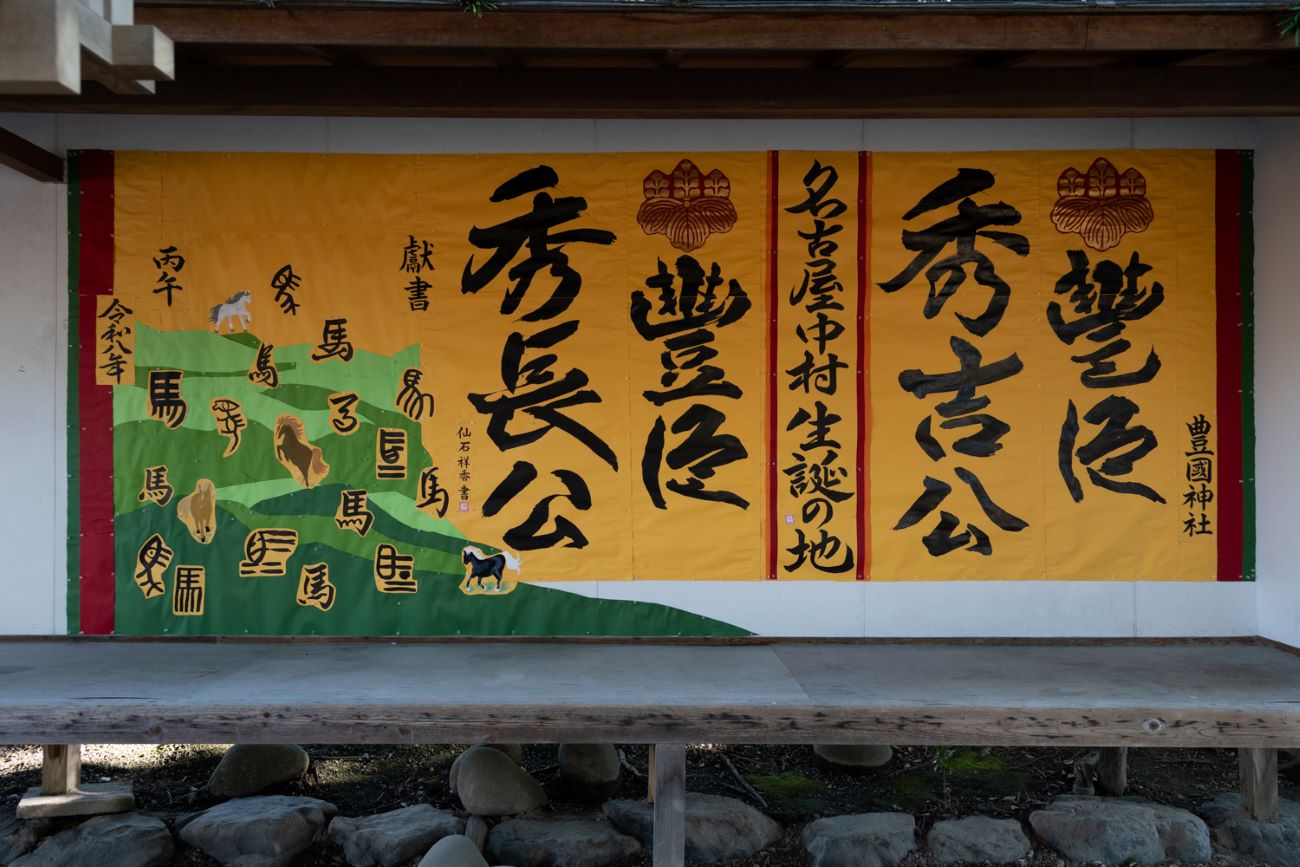 豊國神社
豐臣
秀吉公
名古屋中村生誕の地
豐臣
秀長公
仙石祥香書
獻書
馬
馬
馬
馬
馬
馬
馬
馬
馬
丙午
令和八年